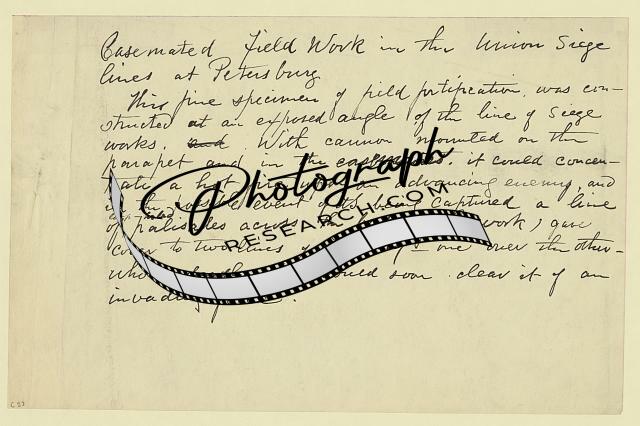 Casemated Field Work in the Union Siege
lines at Petersburg
This fine specimen of field fortification, was con-
structed at an exposed angle of the line of Siege
works. and. With cannon mounted on the
parapet and in the casemates. it could concen-
a hot an advancing enemy, and
in the event captured a line
of palisades across work) gave
to two lines one over the other-
who could soon clear it of an
invading
Photograph
RESEARCH.COM
C 23